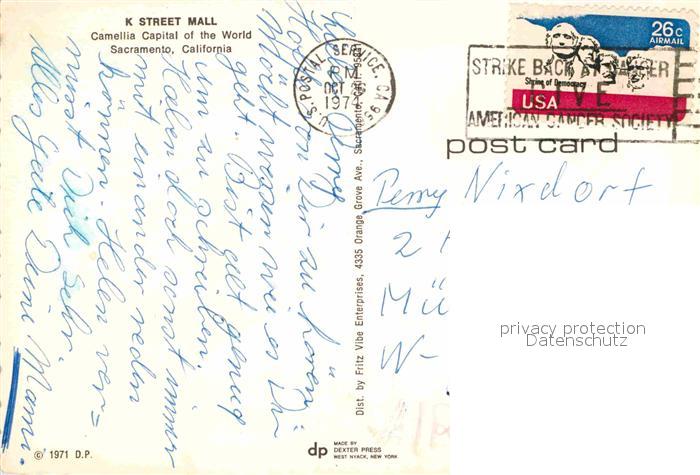 K STREET MALL
Camellia Capital of the World
Sacramento, California
26c
AIRMAIL
Shrine of Democracy
USA
U.S. POSTAL SERVICE, CA 95
PM
OCT
1974
STRIKE BACK AT CANCER
GIVE
AMERICAN CANCER SOCIETY
post card
Penny Nixdorf
2
Mü
W-
privacy protection
Datenschutz
von Dir zu hören
Möcht wissen wie es Dir
geht. Bist alt genug
um zu schreiben.
Helen doch sonst immer
mit einander reden
können. Helen ver=
misst Dich sehr.
Alles Gute Deine Mami.
Dist. by Fritz Vibe Enterprises, 4335 Orange Grove Ave., Sacramento, Calif. 958
© 1971 D.P.
dp
MADE BY
DEXTER PRESS
WEST NYACK, NEW YORK